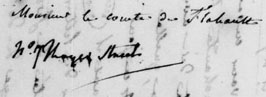 Monsieur le comte de Flahault
No. 7 Street